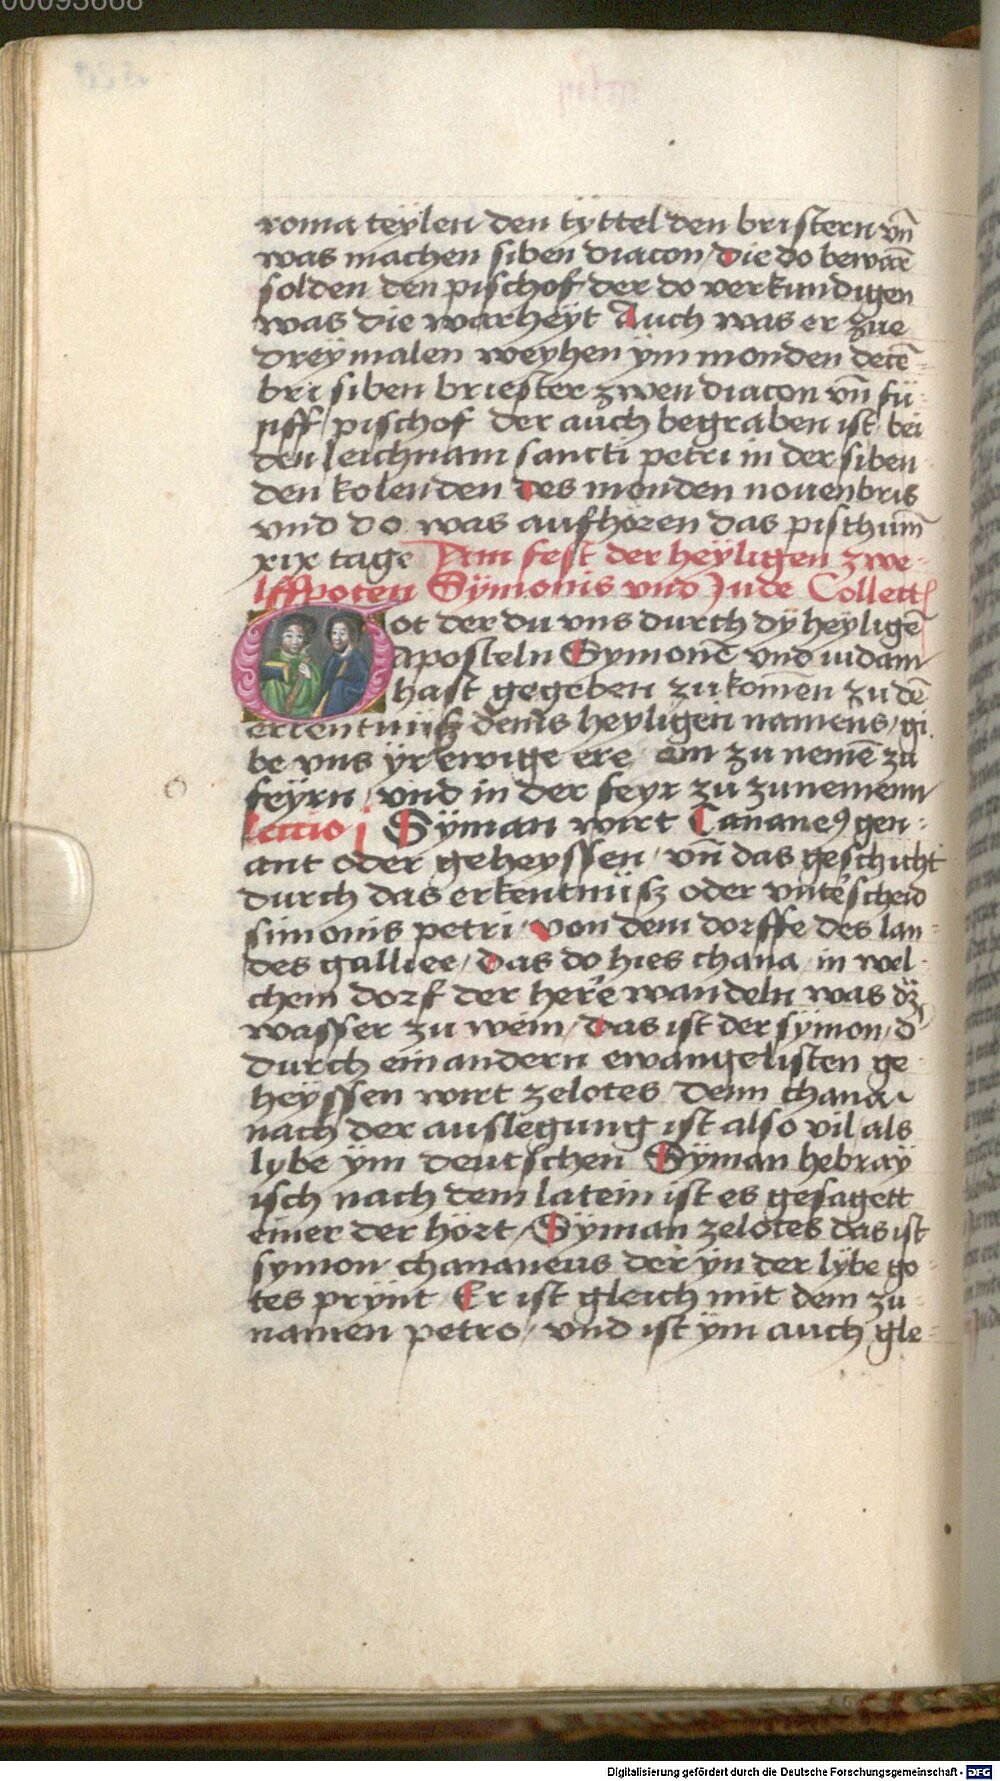 00093668
roma teÿlen den tÿttel den bristern vn̄
was machen siben diacon die do beware᷑
solden den pischof der do verkundigen
was die warheÿt Auch was er zue
dreÿmalen weyhen ÿm monden dece᷑
bri siben briester zwen diacon vn̄ fü
nff pischof der auch begraben ist bei
den leichnam sancti petri in der siben
den kolenden des monden nouenbris
vnd do was aufhören das pisthum̄
xix tage Am fest der heÿligen zwe-
lffpoten Sÿmonis vnd Jude Collect
Got der du vns durch dÿ heÿligē
aposteln Symonē vnd iudam
hast gegeben zu kom̄en zu dē
erkentnüsz deins heyligen namens gi
be vns ÿr ewige ere ein zu nemē zu
feÿrn / vnd in der feyr zu zunemenn
lectio j Sÿman wirt Cananeꝰ gen:
ant oder geheyssen / vn̄ das geschicht
durch das erkentnüsz oder vnte᷑scheid
simonis petri / von dem dorffe des lan-
des galliee / das do hies chana in wel-
chem dorf der her᷑e wandeln was dz̄
wasser zu wein / das ist der sÿmon / d᷑
durch ein andern ewangelisten ge
heÿssen wirt zelotes Denn chana
nach der auslegung ist also vil als
lybe ÿm deutschen Sÿman hebraÿ
isch nach dem latein ist es gesagett
einer der hört / Sÿman zelotes das ist
symon chananeus der ÿn der lÿbe go-
tes prÿnt Er ist gleich mit dem zu-
namen petro / vnd ist ÿm auch gle-
Digitalisierung gefördert durch die Deutsche Forschungsgemeinschaft - DFG